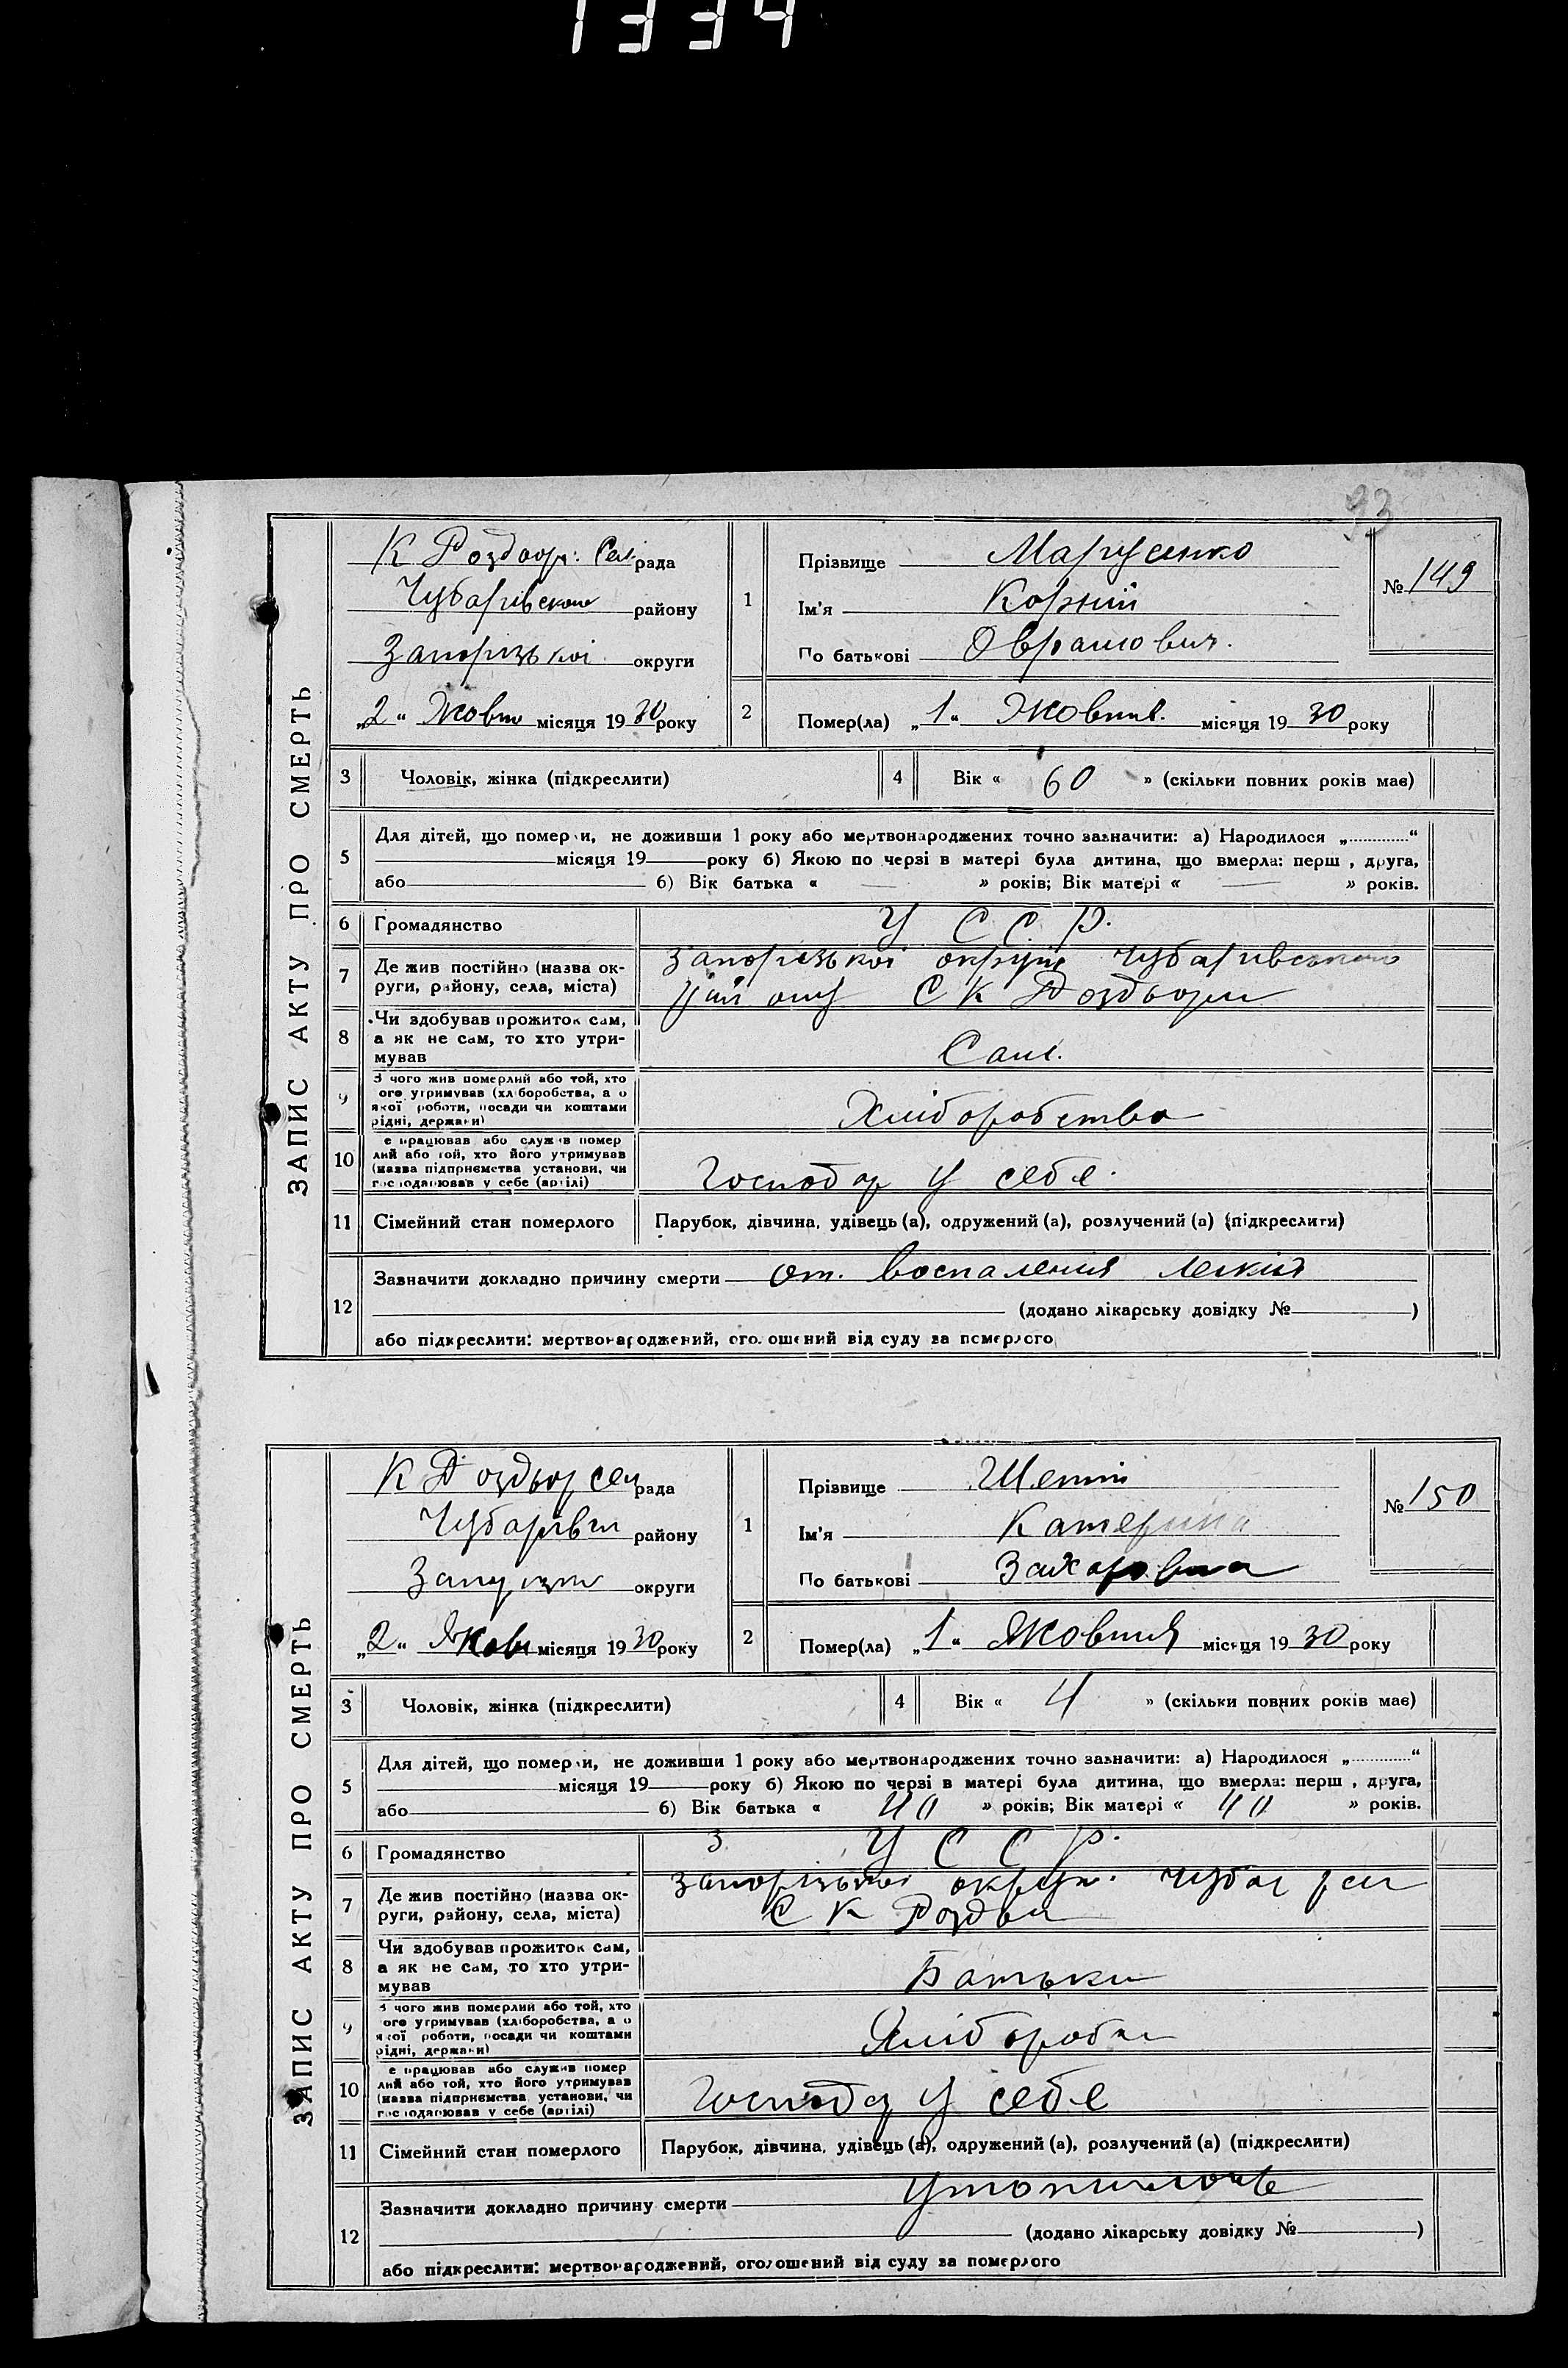 1334
93
ЗАПИС АКТУ ПРО СМЕРТЬ
К Роздор: Сел. рада
Чубарівського району
Запорізькоі округи
„2“ Жовт місяця 1930 року
1
Прізвище Марусенко
Ім'я Корній
По батькові Оврамович.
№ 149
2
Помер(ла) „1“ Жовтня. місяця 1930 року
3 Чоловік, жінка (підкреслити)
4 Вік « 60 » (скільки повних років має)
5 Для дітей, що померли, не доживши 1 року або мертвонароджених точно зазначити: а) Народилося „............“
місяця 19 року б) Якою по черзі в матері була дитина, що вмерла: перш , друга,
або б) Вік батька « — » років; Вік матері « — » років.
6 Громадянство У С С Р.
7 Де жив постійно (назва округи, району, села, міста) Запорізькоі округи Чубарівського
району С К Роздори
8 Чи здобував прожиток сам,
а як не сам, то хто утри-
мував
Сам.
9 З чого жив померлий або той, хто
ого утримував (хліборобства, а о
якої роботи, посади чи коштами
рідні, держави)
Хліборобство
10 е працював або служив помер
лий або той, хто його утримував
(назва підприємства установи, чи
господарював у себе (артілі)
Господар у себе.
11 Сімейний стан померлого Парубок, дівчина, удівець (а), одружений (а), розлучений (а) (підкреслити)
12 Зазначити докладно причину смерти От. воспаления легких
(додано лікарську довідку № )
або підкреслити: мертвонароджений, оголошений від суду за померлого
ЗАПИС АКТУ ПРО СМЕРТЬ
К Роздор сел рада
Чубарівськ району
округи
„2“ Жовт місяця 1930 року
1
Прізвище
Ім'я Катерина
По батькові Захаровна
№ 150
2
Помер(ла) „1“ Жовтня місяця 1930 року
3 Чоловік, жінка (підкреслити)
4 Вік « 4 » (скільки повних років має)
5 Для дітей, що померли, не доживши 1 року або мертвонароджених точно зазначити: а) Народилося „............“
місяця 19 року б) Якою по черзі в матері була дитина, що вмерла: перш , друга,
або б) Вік батька « 40 » років; Вік матері « 40 » років.
6 Громадянство З У С С Р.
7 Де жив постійно (назва округи, району, села, міста) Запорізькоі округи. Чубар рай
С К Роздори
8 Чи здобував прожиток сам,
а як не сам, то хто утри-
мував
Батьки
9 З чого жив померлий або той, хто
ого утримував (хліборобства, а о
якої роботи, посади чи коштами
рідні, держави)
Хлібороби
10 е працював або служив помер
лий або той, хто його утримував
(назва підприємства установи, чи
господарював у себе (артілі)
Господар у себе
11 Сімейний стан померлого Парубок, дівчина, удівець (а), одружений (а), розлучений (а) (підкреслити)
12 Зазначити докладно причину смерти
(додано лікарську довідку № )
або підкреслити: мертвонароджений, оголошений від суду за померлого